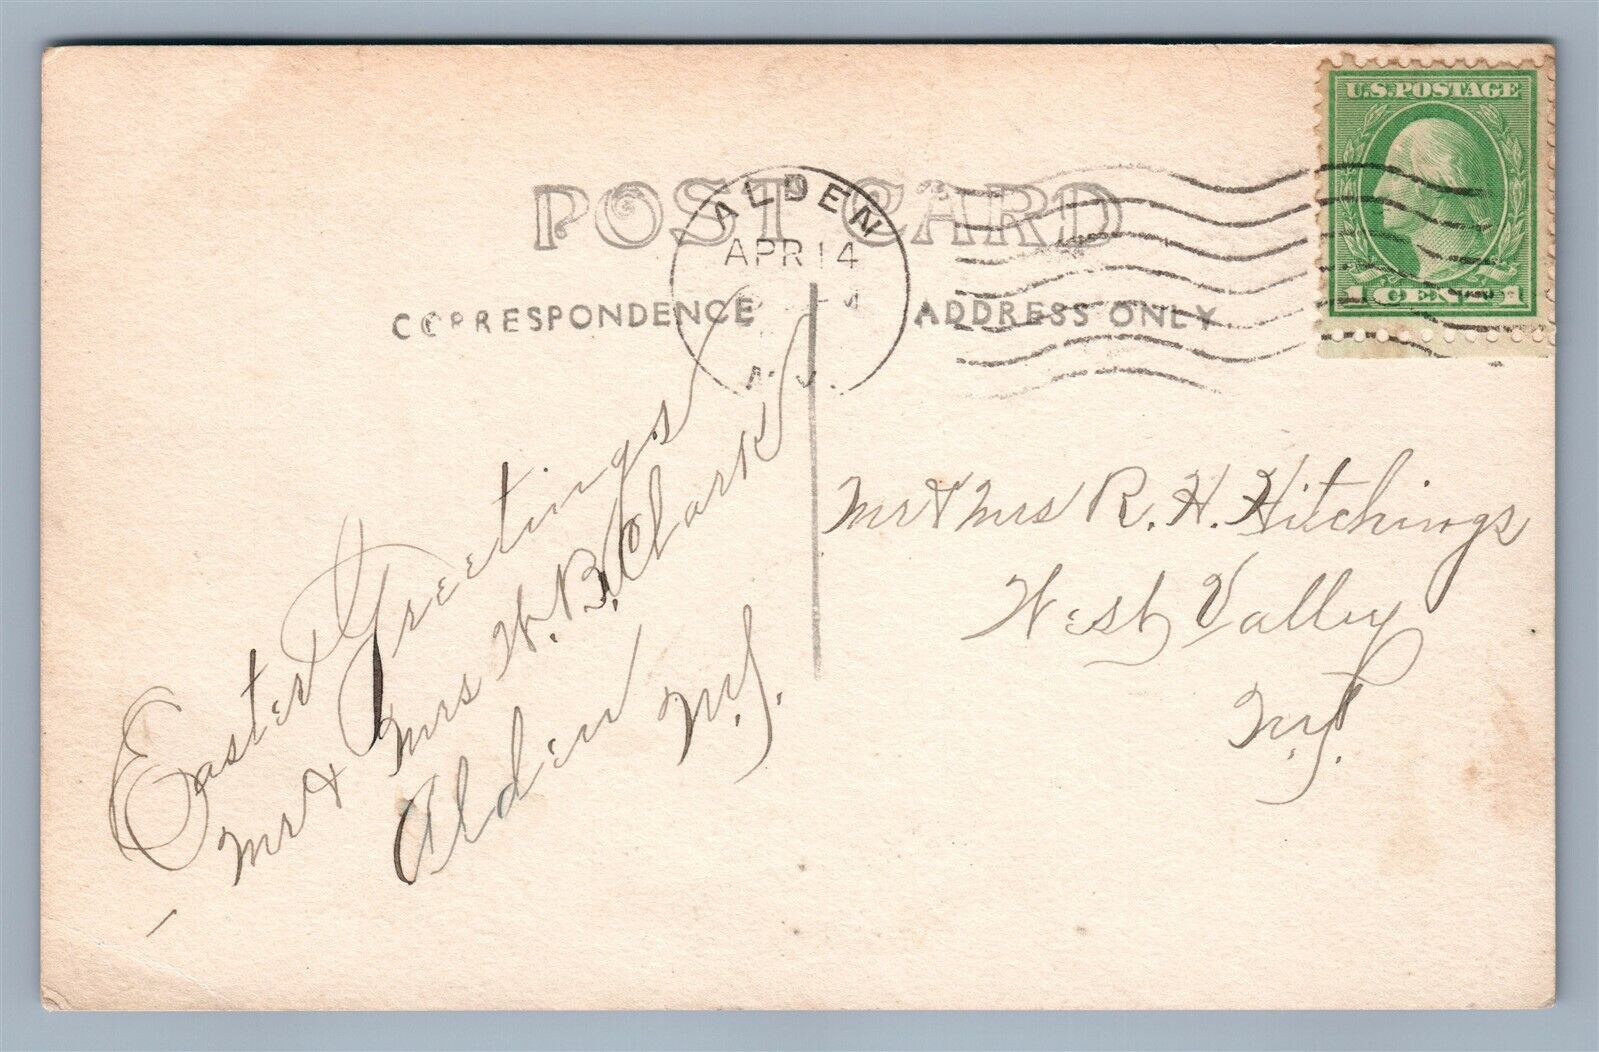 U.S. POSTAGE
1 CENT 1
POST CARD
ALDEN
APR 14
CORRESPONDENCE
ADDRESS ONLY
Easter Greetings
Mr & Mrs W. B. Clark
Alden
N.Y.
Mr & Mrs R. H. Hitchings
West Valley
N.Y.